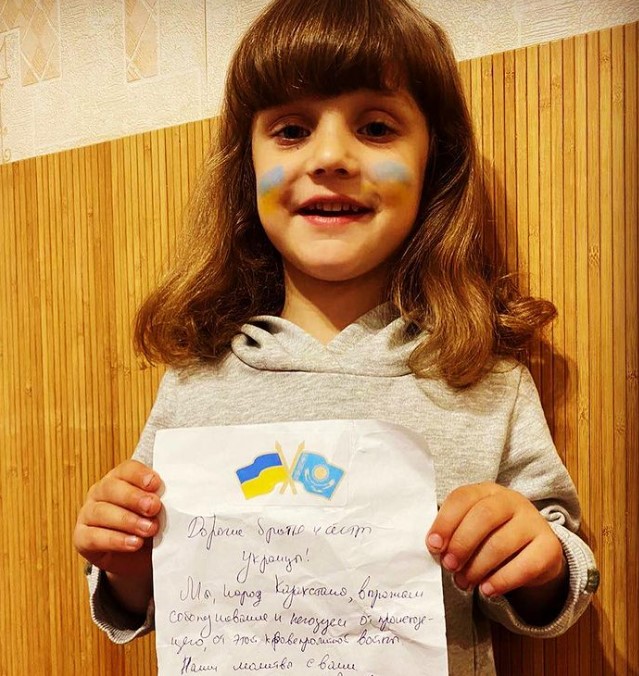 Дорогие братья и сестры
Украинцы!
Мы, народ Казахстана, выражаем
соболезнования и негодуем от происходя-
щего, от этой кровепролитной войны
Наши молитвы с вами